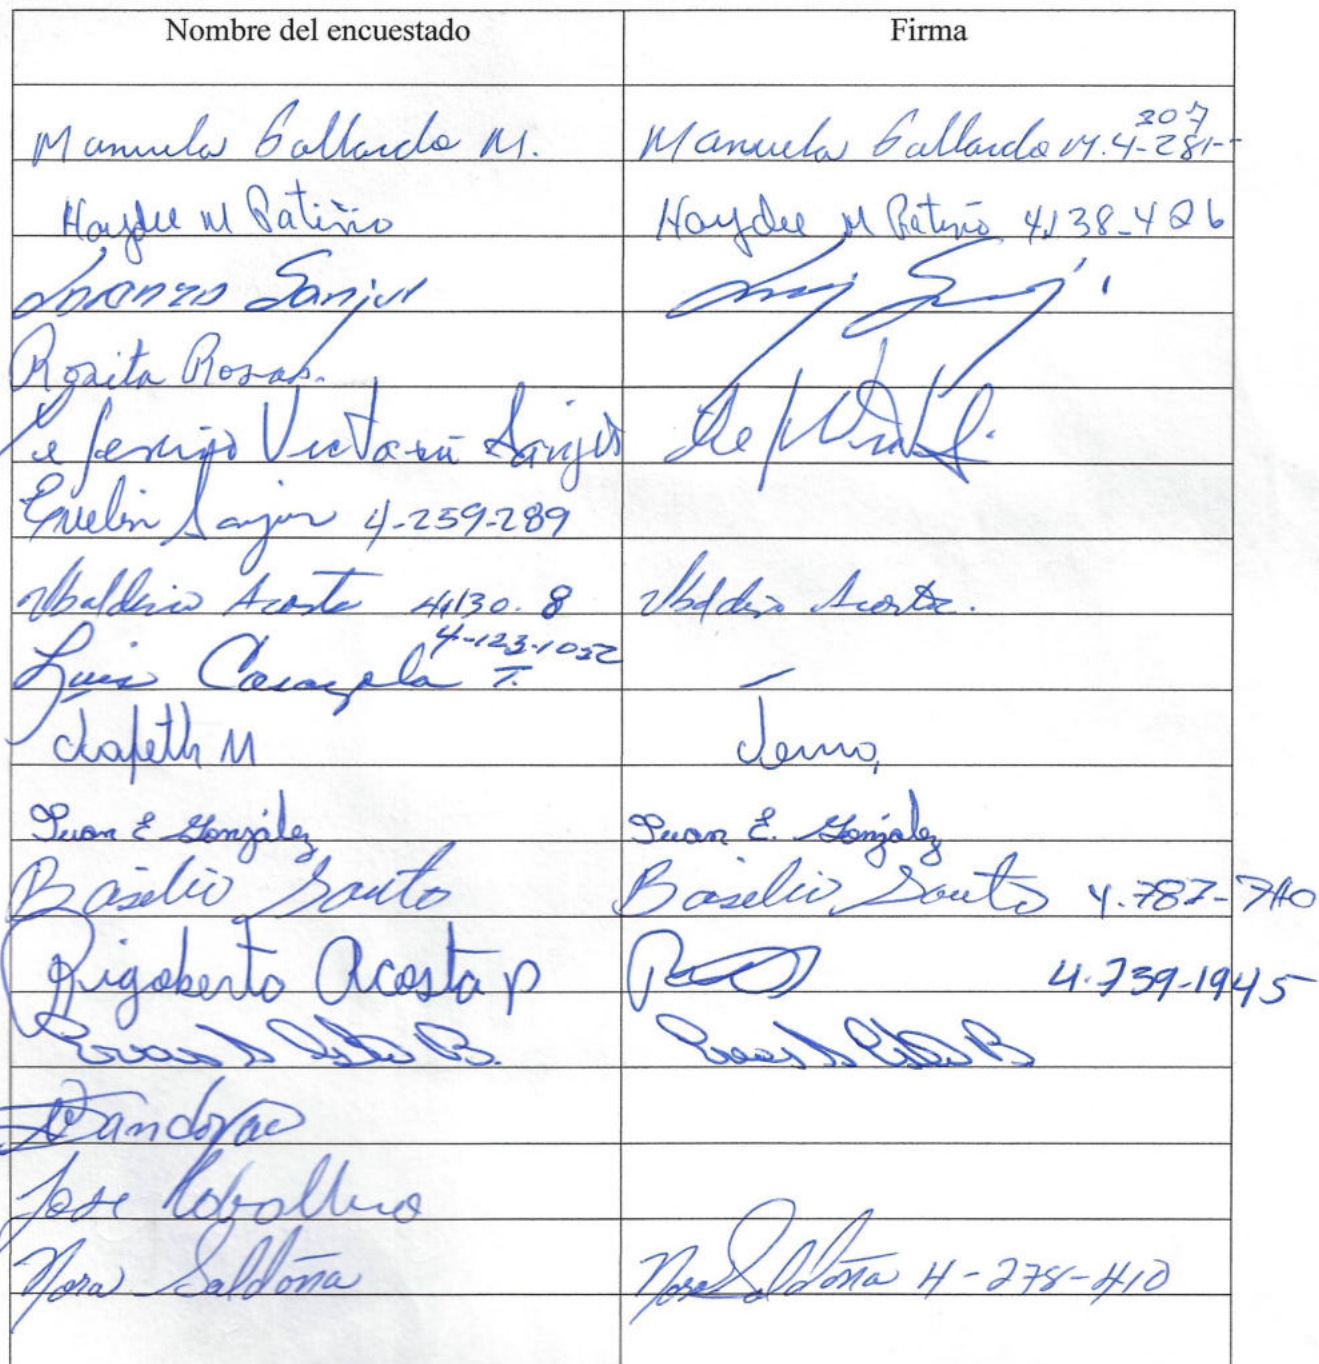 Nombre del encuestado Firma
Manuela Gallardo M. Manuela Gallardo M. 4-281-307
Haydee M Patiño Haydee M Patiño 4138-426
Lorenzo Sanjur
Rosita Rosas.
Ceferino Victoria Sanjur
Evelin Sanjur 4-259-289
Ubaldino Acosta 4,130.8 Ubaldino Acosta.
Luis T. 4-123-1052
Japeth M
Juan E González Juan E. González
Basilio Santo Basilio Santo 4.787-740
Rigoberto Acosta P 4.739-1945
B. B
Sandoval
Jose Caballero
Nora Saldaña Nora Saldaña 4-278-410